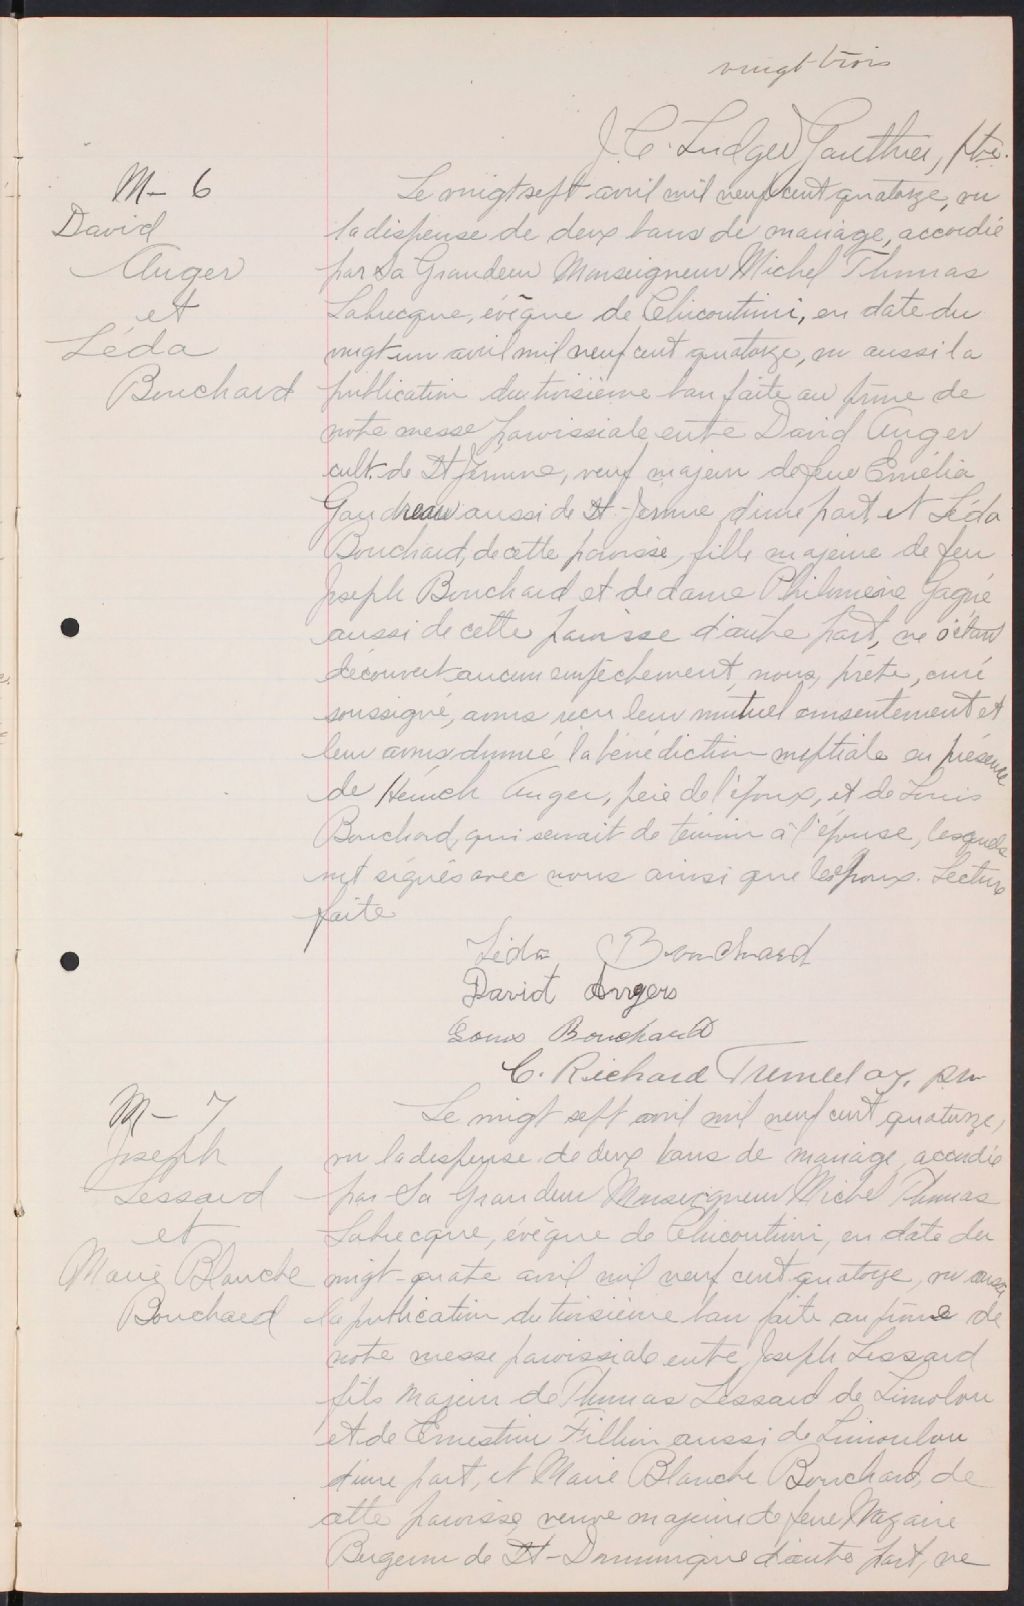 vingt trois
J. C. Ludger Gauthier, Ptre.
M - 6
David
Auger
et
Léda
Bouchard
Le vingt sept avril mil neuf cent quatorze, vu
la dispense de deux bans de mariage, accordée
par Sa Grandeur Monseigneur Michel Thomas
Labrecque, évêque de Chicoutimi, en date du
vingt-un avril mil neuf cent quatorze, vu aussi la
publication du troisième ban faite au prône de
notre messe paroissiale entre David Auger
cult. de St Jérôme, veuf majeur de feue Émélia
Gaudreau aussi de St-Jérôme d'une part, et Léda
Bouchard, de cette paroisse, fille majeure de feu
Joseph Bouchard et de dame Philomène Gagné
aussi de cette paroisse d'autre part, ne s'étant
découvert aucun empêchement, nous, prêtre, curé
soussigné, avons reçu leur mutuel consentement et
leur avons donné la bénédiction nuptiale en présence
de Auger, père de l'époux, et de Louis
Bouchard, qui servait de témoin à l'épouse, lesquels
ont signés avec nous ainsi que les époux. Lecture
faite
Léda Bouchard
David Angers
Louis Bouchard
C. Richard Tremblay, ptre
M - 7
Joseph
Lessard
et
Marie Blanche
Bouchard
Le vingt sept avril mil neuf cent quatorze,
vu la dispense de deux bans de mariage accordée
par Sa Grandeur Monseigneur Michel Thomas
Labrecque, évêque de Chicoutimi, en date du
vingt-quatre avril mil neuf cent quatorze, vu aussi
la publication du troisième ban faite au prône de
notre messe paroissiale entre Joseph Lessard
fils majeur de Thomas Lessard de Limoilou
et de Ernestine Fillion aussi de Limoulou
d'une part, et Marie Blanche Bouchard, de
cette paroisse, veuve majeure de feue Nazaire
Bergeron de St-Dominique d'autre part, ne